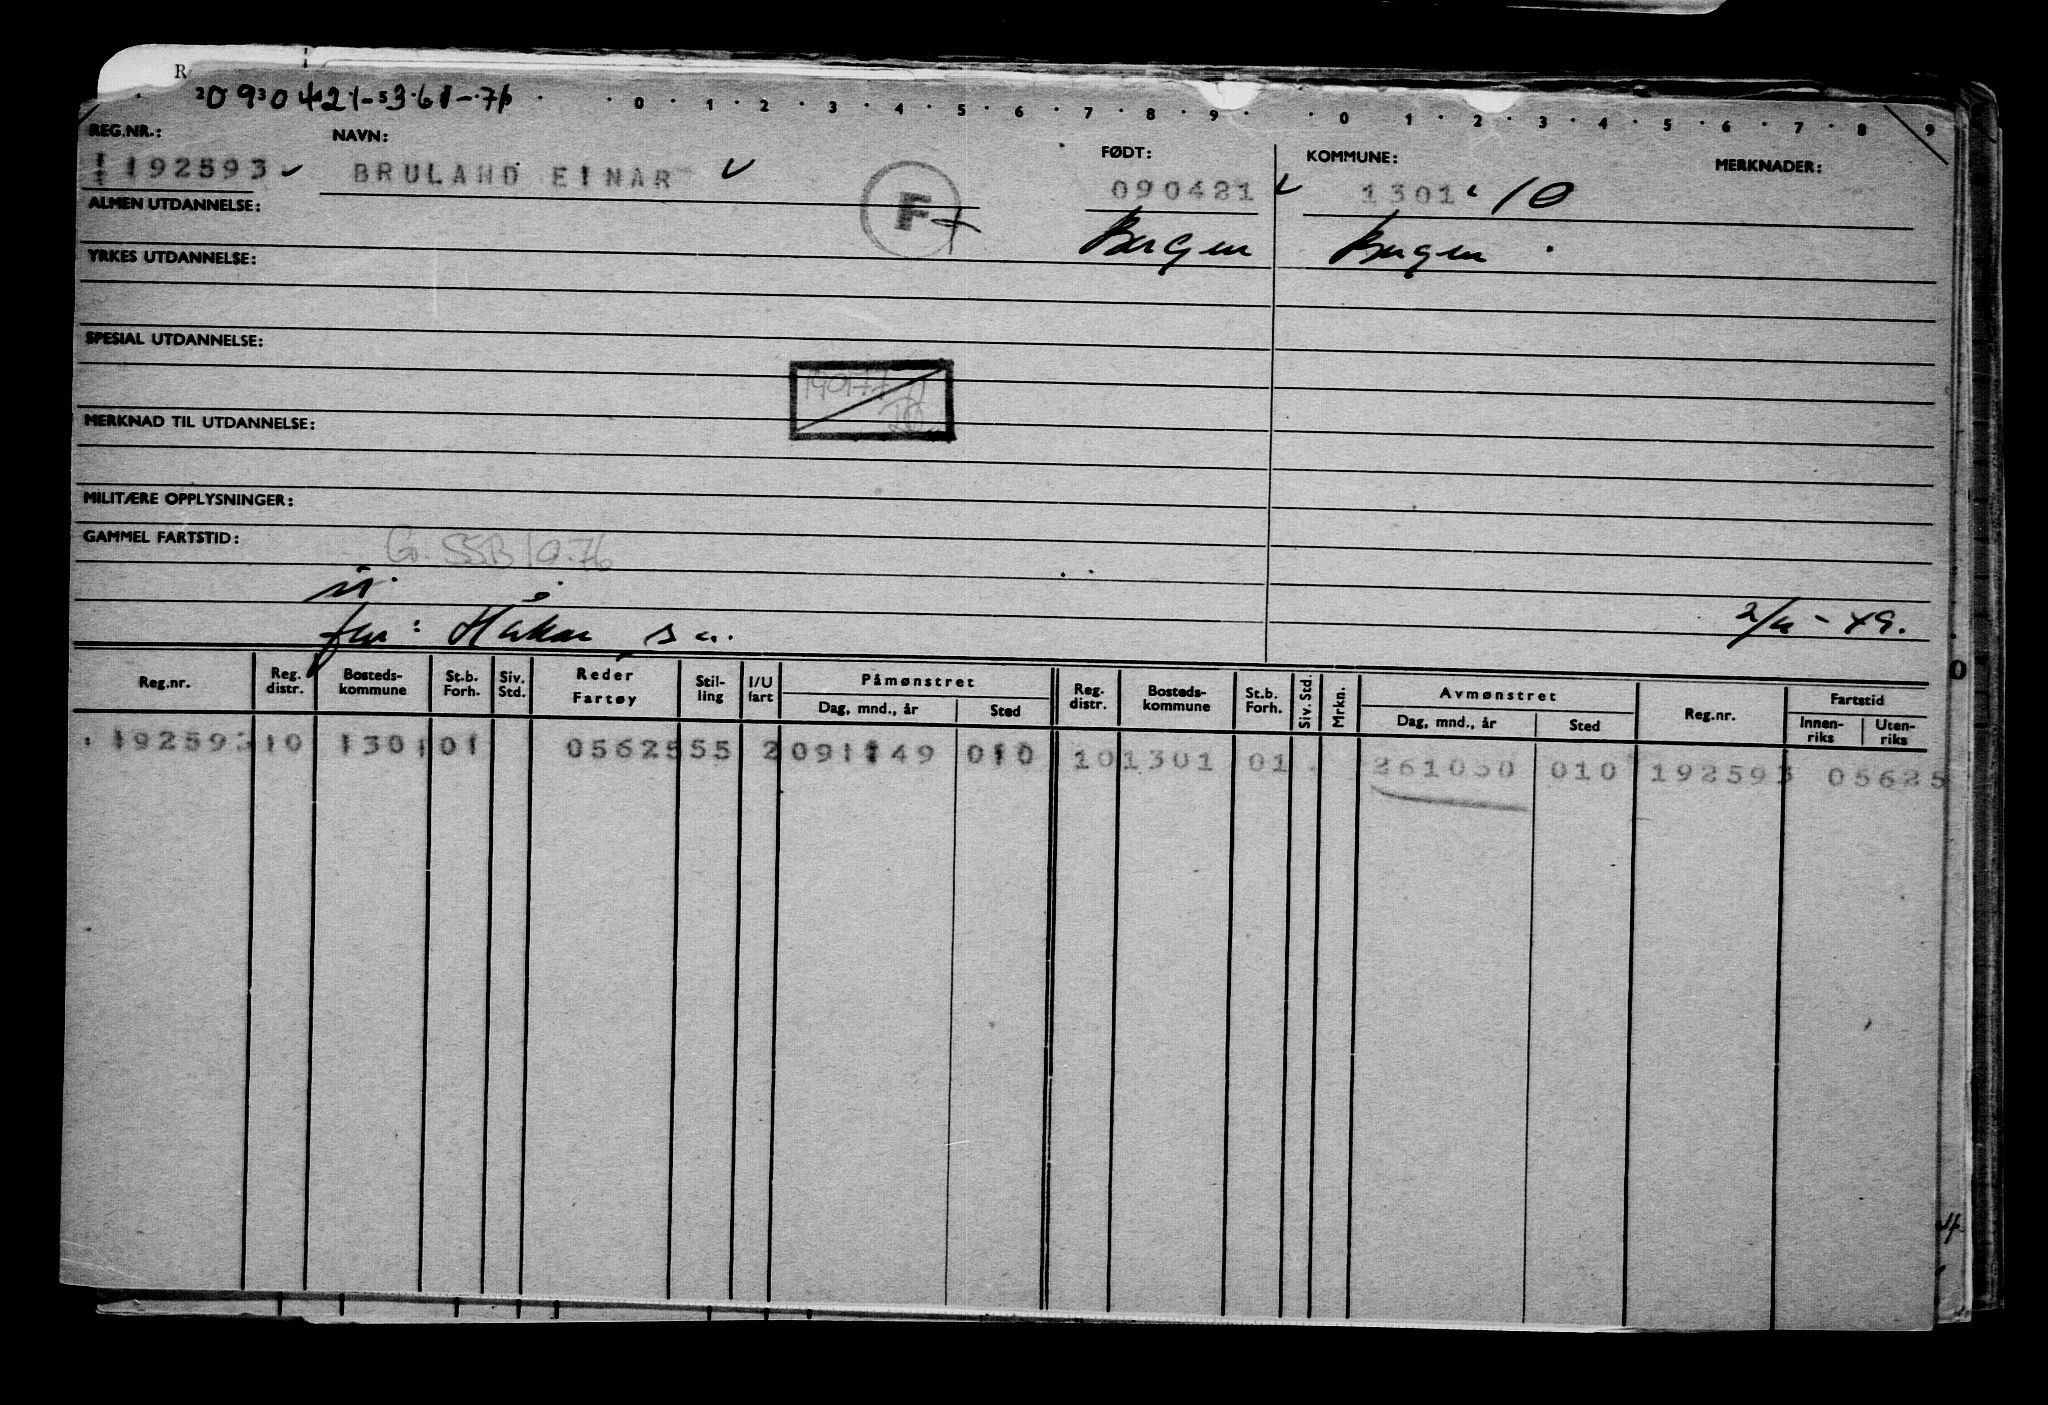 R
REG.NR.: NAVN: FØDT: KOMMUNE: MERKNADER:
0 1 2 3 4 5 6 7 8 9 0 1 2 3 4 5 6 7 8 9
192593 BRULAND EINAR F 090421 1301 10
ALMEN UTDANNELSE: Bergen Bergen
YRKES UTDANNELSE:
SPESIAL UTDANNELSE:
MERKNAD TIL UTDANNELSE:
MILITÆRE OPPLYSNINGER:
GAMMEL FARTSTID:
far: Håkon s.st.
Reg.nr. Reg. distr. Bosteds-kommune St.b. Forh. Siv. Std. Reder Fartøy Stil-ling I/U fart Påmønstret Dag, mnd., år Sted Reg. distr. Bosteds-kommune St.b. Forh. Siv. Std. Mrkn. Avmønstret Dag, mnd., år Sted Reg.nr. Fartstid Innen-riks Uten-riks
192593 10 1301 01 05625 55 2 091149 010 10 1301 01 261050 010 192593 05625